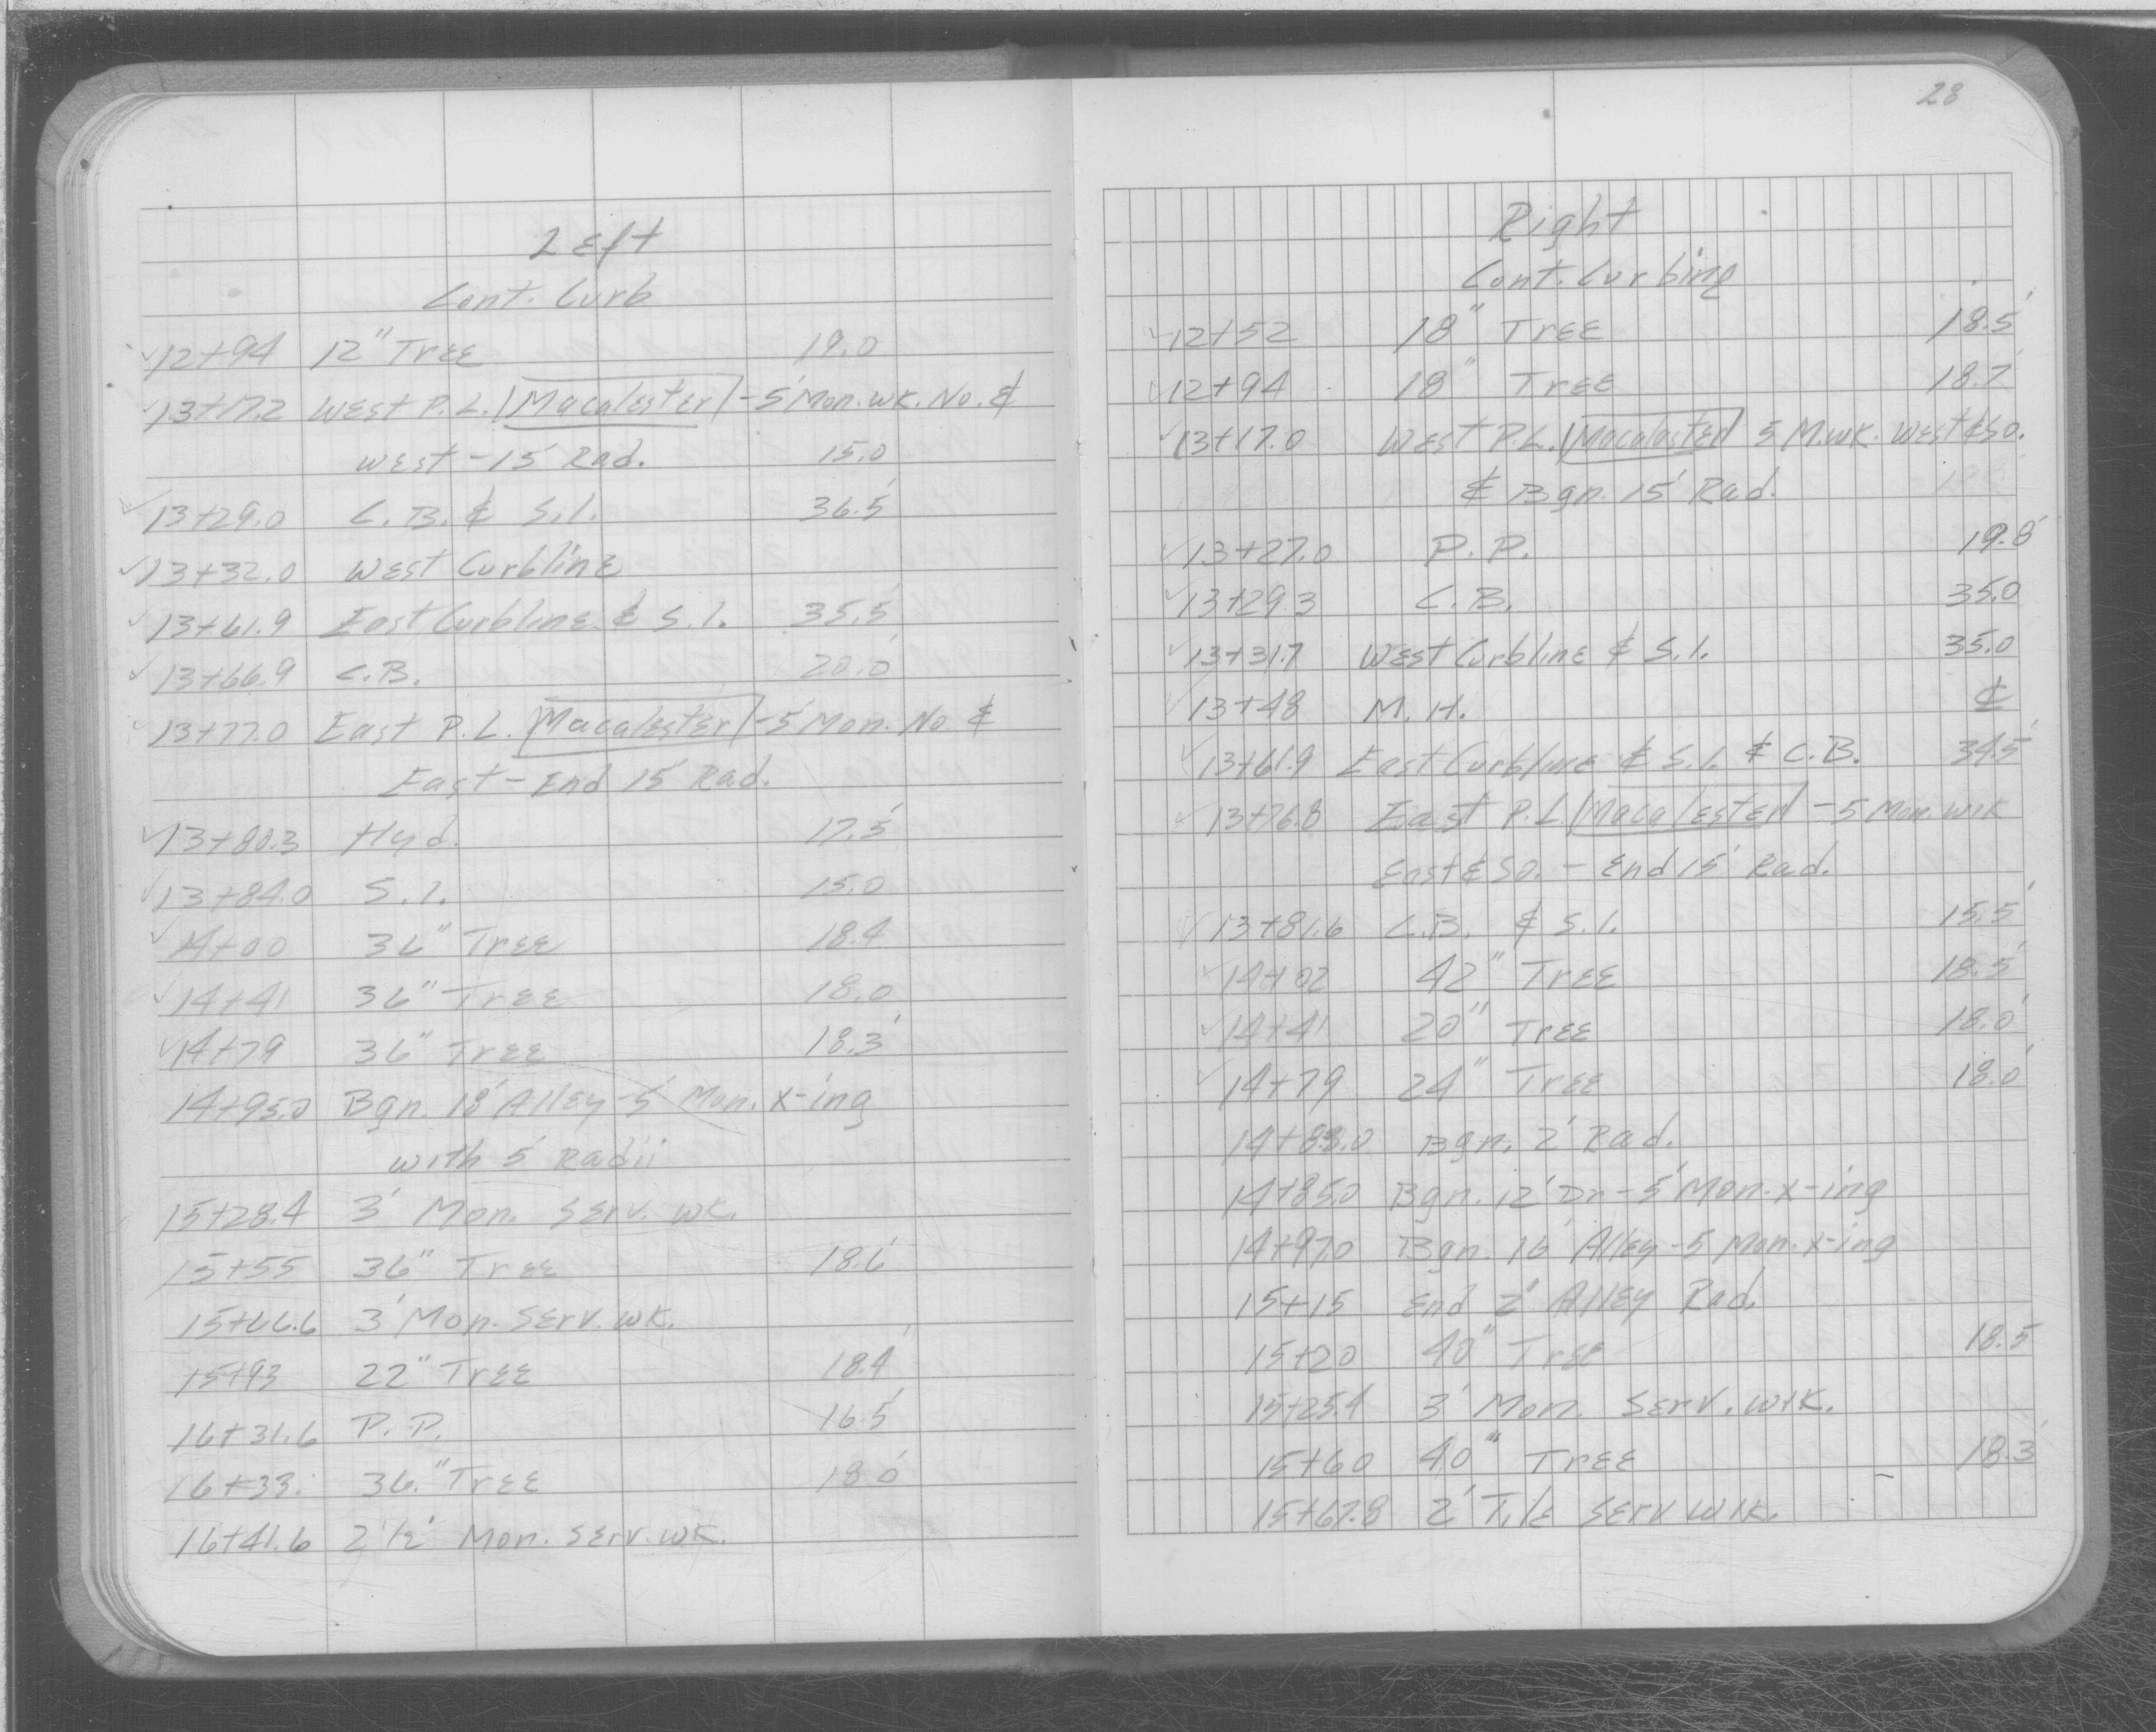 Left
Cont. Curb
✓12+94 12" Tree 19.0
✓13+17.2 West P.L. Macalester -5' Mon. wk. No. &
west - 15' Rad. 15.0
✓13+29.0 C.B. & S.I. 36.5'
✓13+32.0 West Curbline
✓13+61.9 East Curbline & S.I. 35.5'
✓13+66.9 C.B. 20.0'
✓13+77.0 East P.L. Macalester -5' Mon. No. &
East - End 15' Rad.
✓13+80.3 Hyd. 17.5'
✓13+84.0 S.I. 15.0
✓14+00 36" Tree 18.4
✓14+41 36" Tree 18.0
✓14+79 36" Tree 18.3'
14+95.0 Bgn. 18' Alley -5' Mon. x-ing
with 5' Radii
15+28.4 3' Mon. Serv. wk.
15+55 36" Tree 18.6'
15+66.6 3' Mon. Serv. wk.
15+93 22" Tree 18.4'
16+31.6 P.P. 16.5'
16+33. 36." Tree 18.0'
16+41.6 2 1/2' Mon. Serv. wk.
28
Right
Cont. Curbing
✓12+52 18" Tree 18.5'
✓12+94 18" Tree 18.7'
✓13+17.0 West P.L. Macalester 5 M.wk. West & So.
& Bgn. 15' Rad.
✓13+27.0 P.P. 19.8'
✓13+29.3 C.B. 35.0
✓13+31.7 West Curbline & S.I. 35.0
✓13+48 M.H. ₵
✓13+61.9 East Curbline & S.I. & C.B. 34.5'
✓13+76.8 East P.L. Macalester - 5 Mon. wlk
East & So. - End 15' Rad.
✓13+81.6 C.B. & S.I. 15.5'
✓14+02 42" Tree 18.5'
✓14+41 20" Tree 18.0'
✓14+79 24" Tree 18.0'
14+83.0 Bgn. 2' Rad.
14+85.0 Bgn. 12' Dr - 5' Mon. x-ing
14+97.0 Bgn. 16' Alley - 5 Mon. x-ing
15+15 End 2' Alley Rad.
15+20 40" Tree 18.5
15+25.4 3' Mon. Serv. wlk.
15+60 40" Tree 18.3'
15+67.8 2' Tile Serv Wlk.